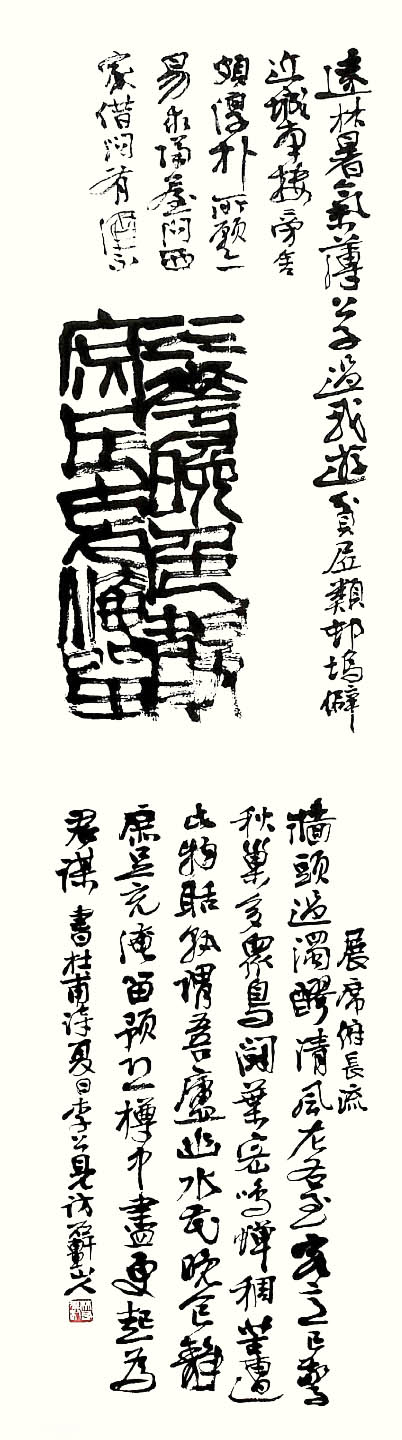 遠林暑氣薄公子過我遊貧居類邨塢僻
近城南樓旁舍
頗淳朴所願亦
易求隔屋問西
家借問有酒不
水花晚色靜
庶足充淹留
展席俯長流
牆頭過濁醪清風左右至客意已驚
秋巢多眾鳥鬪葉密鳴蟬稠苦遭
此物聒孰謂吾廬幽水花晚色靜
庶足充淹留預恐樽中盡更起為
君謀 書杜甫詩夏日李公見訪